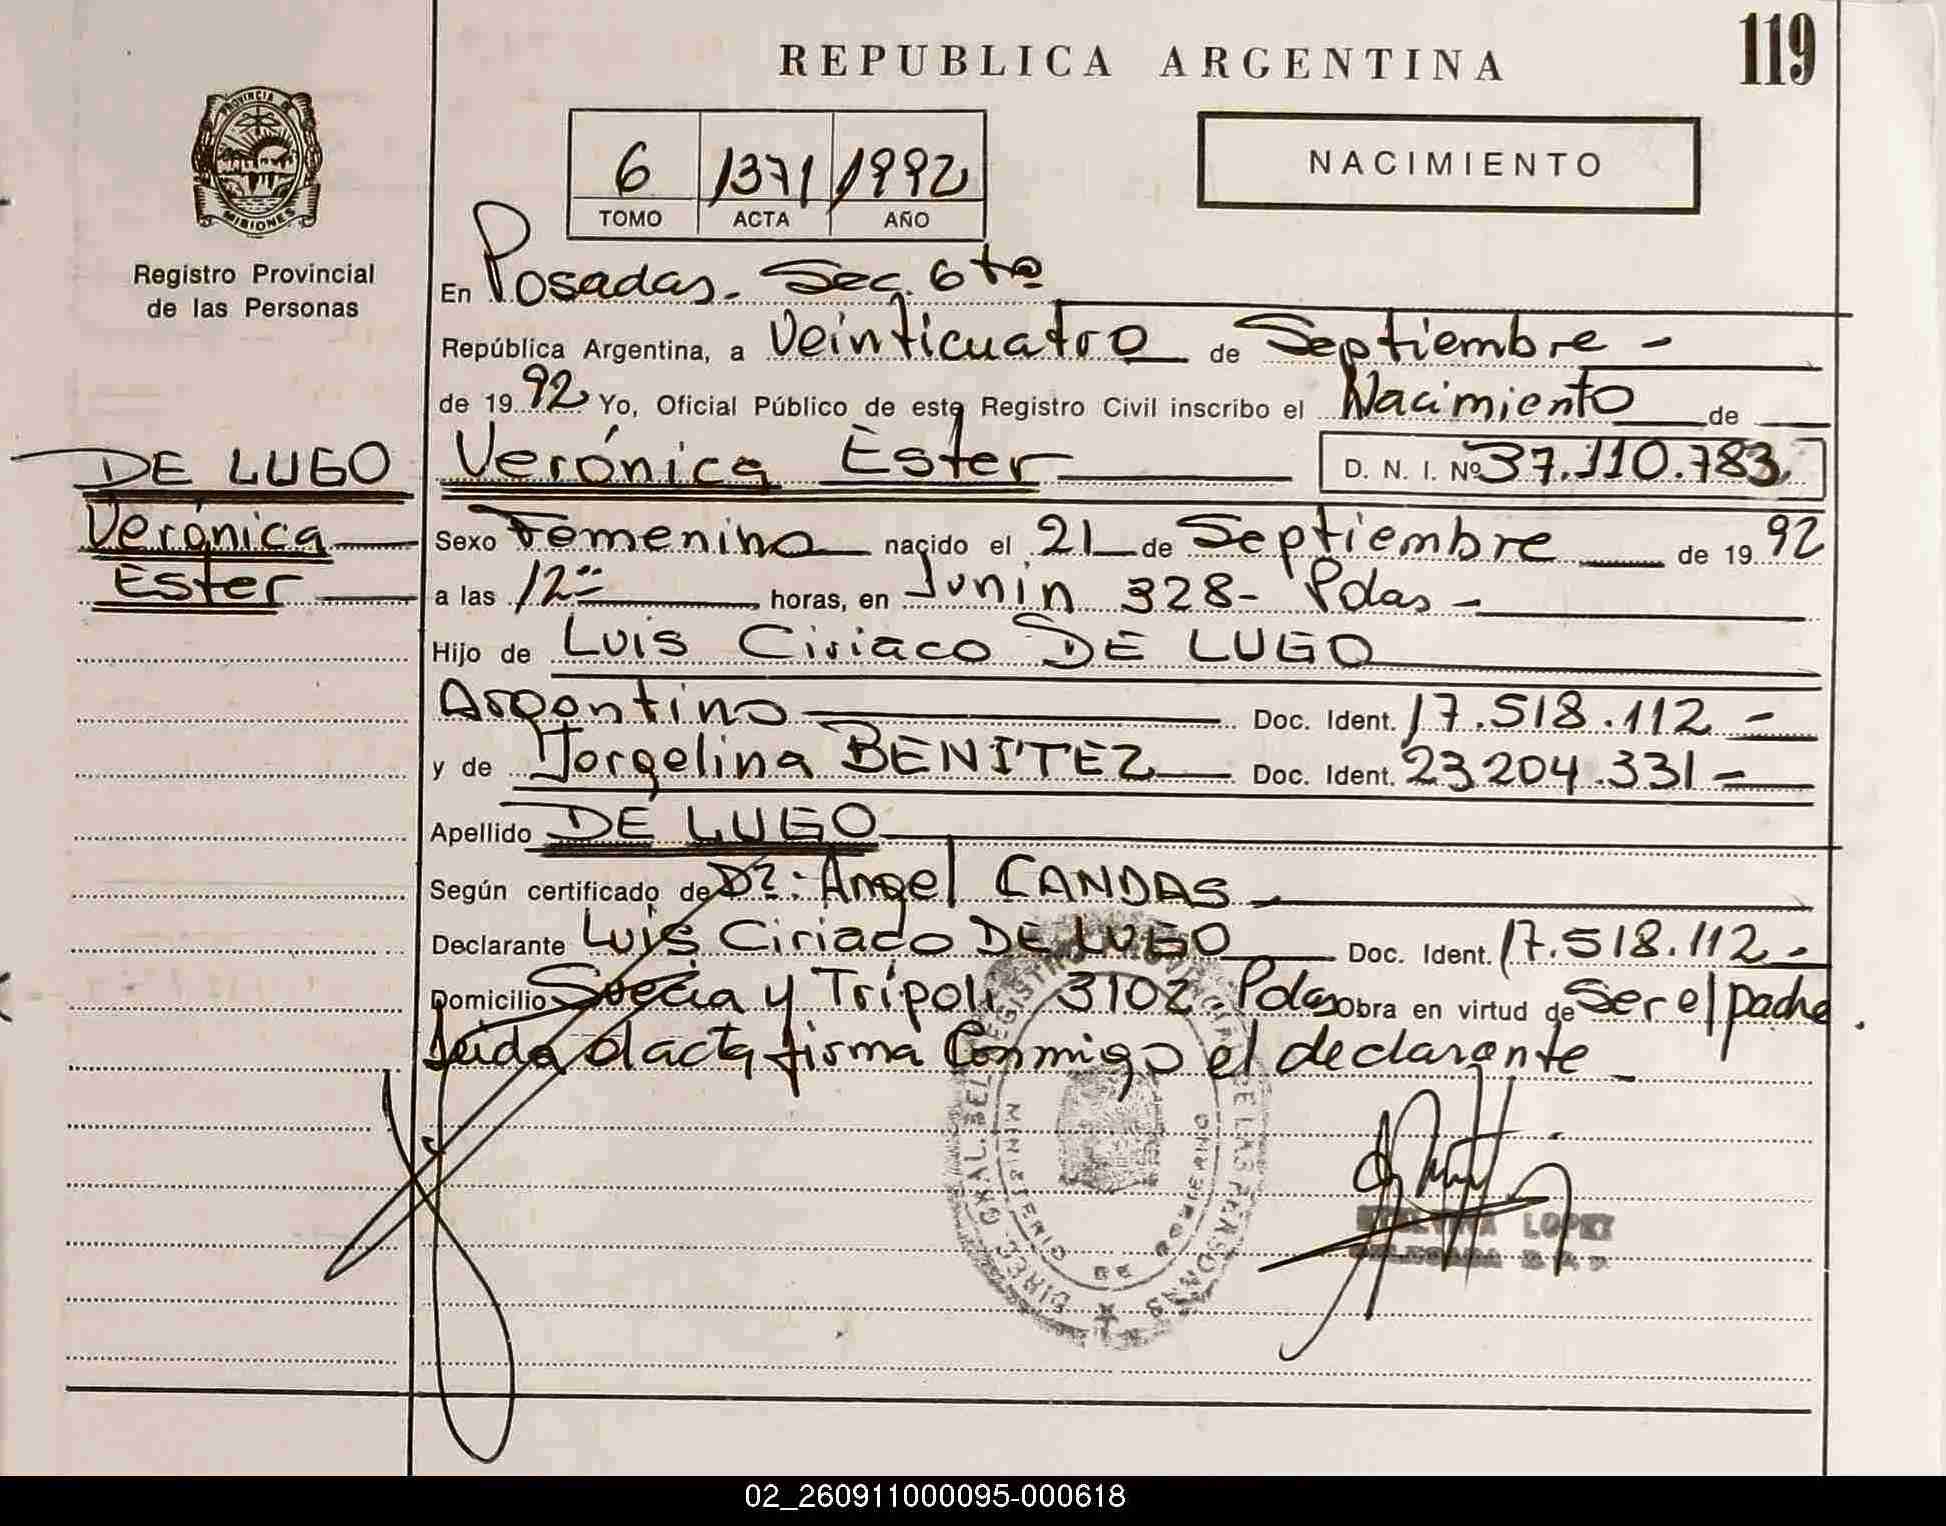 119
REPUBLICA ARGENTINA
NACIMIENTO
6 1371 1992
TOMO ACTA AÑO
PROVINCIA DE
MISIONES
Registro Provincial
de las Personas
En Posadas. Sec. 6ta
República Argentina, a Veinticuatro de Septiembre -
de 1992 Yo, Oficial Público de este Registro Civil inscribo el Nacimiento de
Verónica Ester D. N. I. Nº 37.110.783
DE LUGO
Verónica
Ester
Sexo Femenino nacido el 21 de Septiembre de 1992
a las 12 horas, en Junin 328- Pdas -
Hijo de Luis Ciriaco DE LUGO
Argentino Doc. Ident. 17.518.112 -
y de Jorgelina BENITEZ Doc. Ident. 23204.331 -
Apellido DE LUGO
Según certificado de Dr: Angel CANDAS
Declarante Luis Ciriaco DE LUGO Doc. Ident. 17.518.112 -
Domicilio Suecia y Trípoli 3102 Pdas Obra en virtud de Ser el padre
Leida el acta firma Conmigo el declarante
REGISTRO PROVINCIAL DE LAS PERSONAS
MINISTERIO DE GOBIERNO
LOPEZ
02_260911000095-000618